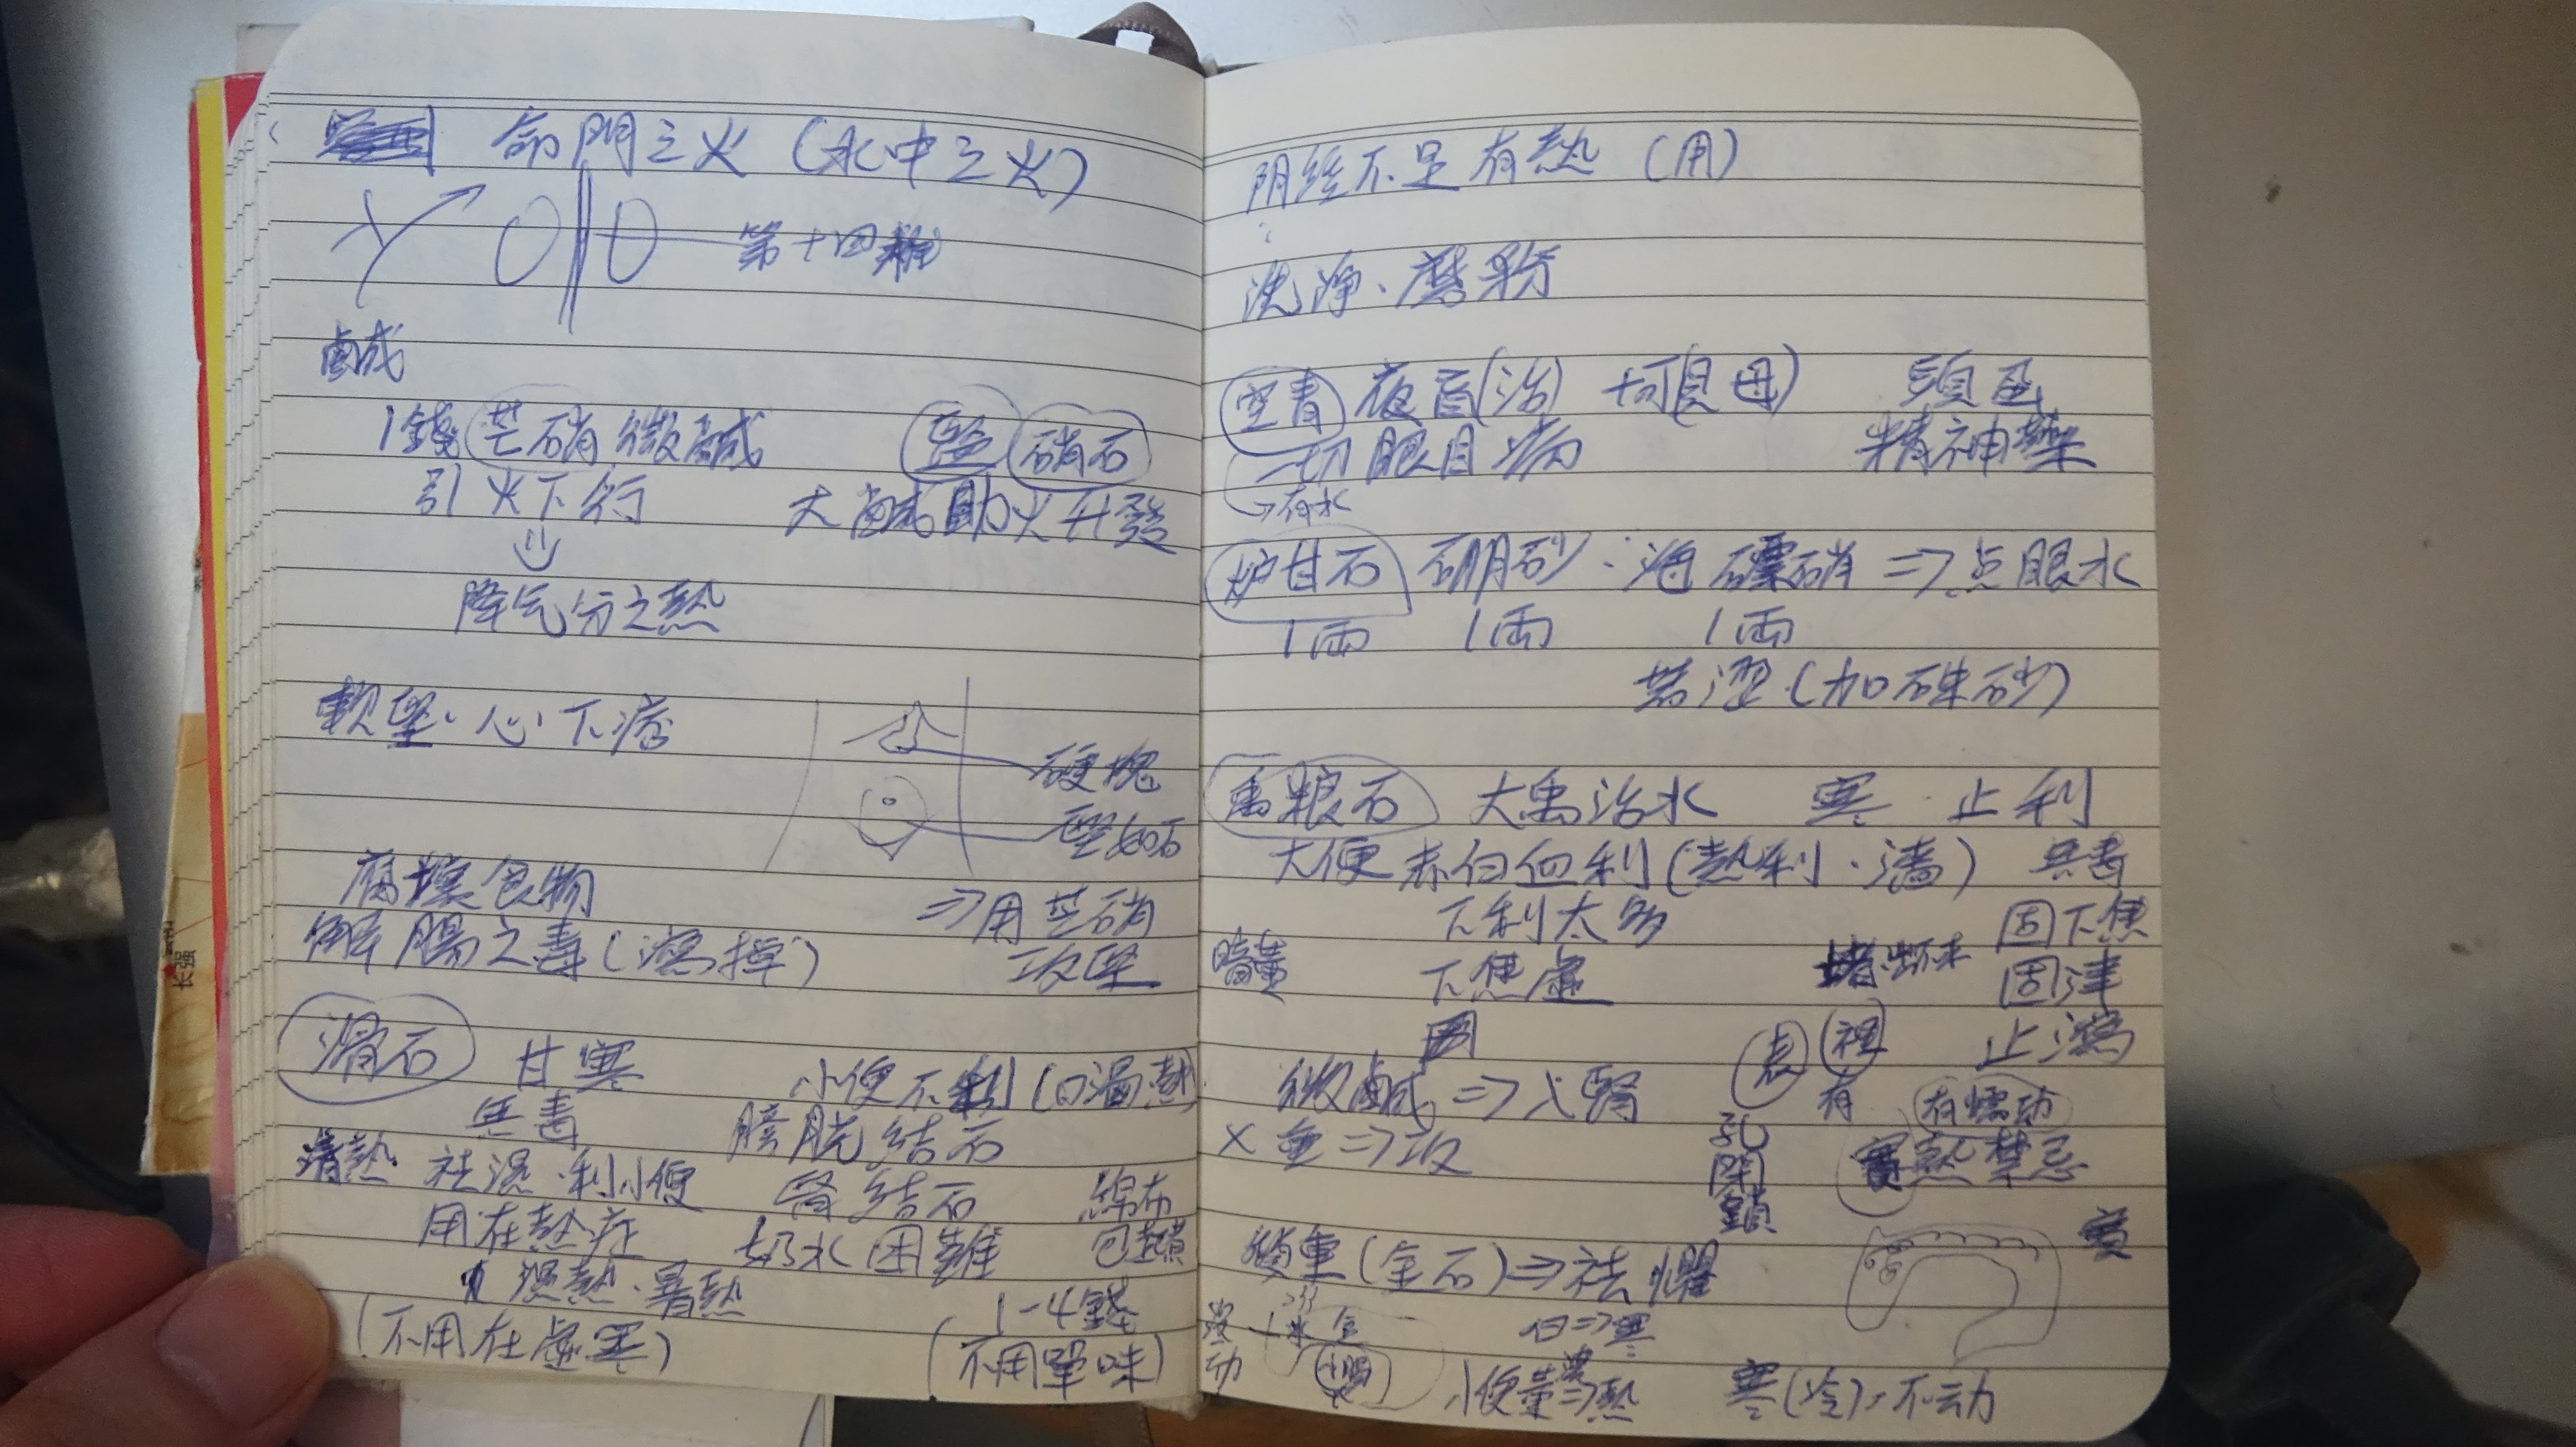 命門之火（水中之火）
第十四難
鹹
1錢芒硝微鹹
鹽 硝石
引火下行
大鹹助火升發
降气分之熱
軟堅、心下痞
硬塊
堅如石
腐壞食物
⇒用芒硝
解腸之毒（瀉掉）
攻堅
滑石 甘寒
小便不利（口渴熱）
無毒
膀胱結石
清熱 祛濕、利小便
腎結石 綿布
用在熱症
奶水困難 包煎
濕熱、暑熱
1-4錢
（不用在虛寒）
（不用單味）
阴絲不足有熱（用）
洗淨、磨粉
空青 夜盲（治）
頭風
一切眼目病
→有水
炉甘石 硼砂、海螵蛸⇒点眼水
1両 1両 1両
（加硃砂）
禹粮石 大禹治水 寒、止利
大便赤白血利（熱利、 ） 無毒
下利太多
固下焦
暗黃
下焦虛
固津
表 裡
止瀉
微鹹⇒入腎
有
有蠕动
X 重⇒攻
孔
開
實熱禁忌
鎮重（金石）⇒祛
白⇒寒
动
小便黃⇒熱
寒（冷）、不动
长强